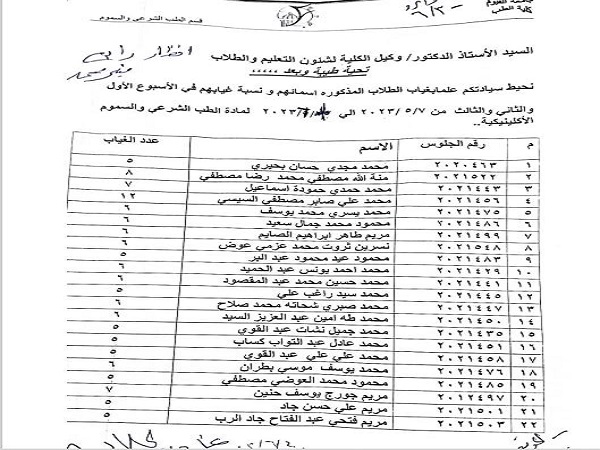 كلية الطب
قسم الطب الشرعي والسموم
السيد الأستاذ الدكتور/ وكيل الكلية لشئون التعليم والطلاب
تحية طيبة وبعد .....
نحيط سيادتكم علما بغياب الطلاب المذكوره اسمائهم و نسبة غيابهم في الأسبوع الأول
والثاني والثالث من ٢٠٢٣/٥/٧ الى ٢٠٢٣ لمادة الطب الشرعي والسموم
الأكلينيكية..
م رقم الجلوس الاسم عدد الغياب
١ ٢٠٢٠٤٦٣ محمد مجدي حسان بحيري ٥
٢ ٢٠٢١٥٢٢ منة الله مصطفي محمد رضا مصطفي ٨
٣ ٢٠٢١٤٤٣ محمد حمدي حمودة اسماعيل ٧
٤ ٢٠٢١٤٥٦ محمد علي صابر مصطفى السيسي ١٢
٥ ٢٠٢١٤٧٥ محمد يسري محمد يوسف ٦
٦ ٢٠٢١٤٨٦ محمود محمد جمال سعيد ٦
٧ ٢٠٢١٤٩٩ مريم طاهر ابراهيم الصايم ٦
٨ ٢٠٢١٥٤٨ نسرين ثروت محمد عزمي عوض ٦
٩ ٢٠٢١٤٨٣ محمود عبد محمود عبد البر ٥
١٠ ٢٠٢١٤٢٩ محمد احمد يونس عبد الحميد ٦
١١ ٢٠٢١٤٤١ محمد حسين محمد عبد المقصود ٦
١٢ ٢٠٢١٤٤٥ محمد سيد راغب علي ٥
١٣ ٢٠٢١٤٤٧ محمد صبري شحاته محمد صلاح ٦
١٤ ٢٠٢١٤٥٠ محمد طه امين عبد العزيز السيد ٦
١٥ ٢٠٢١٤٣٥ محمد جميل نشات عبد القوي ٥
١٦ ٢٠٢١٤٥١ محمد عادل عبد التواب كساب ٥
١٧ ٢٠٢١٤٥٨ محمد علي علي عبد القوي ٥
١٨ ٢٠٢١٤٧٦ محمد يوسف موسي بطران ٦
١٩ ٢٠٢١٤٨٥ محمود محمد العوضي مصطفي ٥
٢٠ ٢٠١٢٤٩٧ مريم جورج يوسف حنين ٧
٢١ ٢٠٢١٥٠١ مريم علي حسن جاد ٥
٢٢ ٢٠٢١٥٠٣ مريم فتحي عبد الفتاح جاد الرب ٥